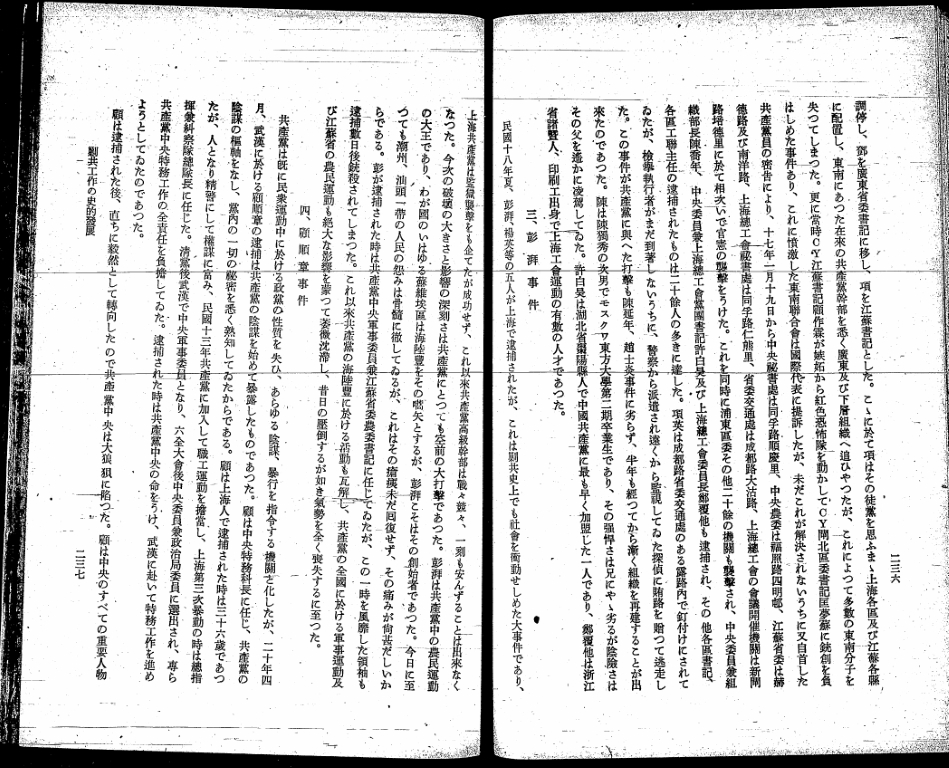 二三六
調停し、鄧を廣東省委書記に移し、項を江蘇書記とした。こゝに於て項はその徒黨を思ふまゝ上海各區及び江蘇各縣
に配置し、東南にあつた在來の共產黨幹部を悉く廣東及び下層組織へ追ひやつたが、これによつて多數の東南分子を
失つてしまつた。更に當時ＣＹ江蘇書記顧作霖が嫉妬から紅色恐怖隊を動かしてＣＹ閘北區委書記匡夢蘇に銃創を負
はしめた事件あり、これに憤激した東南聯合會は國際代表に提訴したが、未だこれが解決されないうちに又自首した
共產黨員の密告により、十七年二月十九日から中央秘書處は同孚路順慶里、中央農委は福煦路四明邨、江蘇省委は赫
德路及び南洋路、上海總工會秘書處は同孚路仁熊里、省委交通處は成都路大沽路、上海總工會の會議開催機關は新閘
路培德里に於て相次いで官憲の襲擊をうけた。これと同時に浦東區委その他二十餘の機關も襲擊され、中央委員兼組
織部長陳喬年、中央委員兼上海總工會黨團書記許白昊及び上海總工會委員長鄭覆他も逮捕され、その他各區書記、
各區工聯主任の逮捕されたものは二十餘人の多きに達した。項英は成都路省委交通處のある露路内で釘付けにされて
ゐたが、檢擧執行者がまだ到着しないうちに、警察から派遣され遠くから監視してゐた探偵に賄路を贈つて逃走し
た。この事件が共產黨に與へた打擊も陳延年、趙士炎事件に劣らず、半年も經つてから漸く組織を再建することが出
來たのであつた。陳は陳獨秀の次男でモスクワ東方大學第二期卒業生であり、その强悍さは兄にやゝ劣るが陰險さは
その父を遙かに凌駕してゐた。許白昊は湖北省棗陽縣人で中國共產黨に最も早く加盟した一人であり、鄭覆他は浙江
省諸暨人、印刷工出身で上海工會運動の有數の人才であつた。
三、彭湃事件
民國十八年夏、彭湃、楊英等の五人が上海で逮捕されたが、これは剿共史上でも社會を衝動せしめた大事件であり、
上海共產黨は監獄襲擊をも企てたが成功せず、これ以來共產黨高級幹部は戰々兢々、一刻も安んずることは出來なく
なつた。今次の破壞の大きさと影響の深刻さは共產黨にとつても空前の大打擊であつた。彭湃は共產黨中の農民運動
の大王であり、わが國のいはゆる蘇維埃區は海陸豐をその嚆矢とするが、彭湃こそはその創始者であつた。今日に至
つても潮州、汕頭一帶の人民の怨みは骨髓に徹してゐるが、これはその瘡痍未だ回復せず、その痛みが尙甚だしいか
らである。彭が逮捕された時は共產黨中央軍事委員兼江蘇省委農委書記に任じてゐたが、この一時を風靡した領袖も
逮捕數日後銃殺されてしまつた。これ以來共產黨の海陸豐に於ける活動も瓦解し、共產黨の全國に於ける軍事運動及
び江蘇省の農民運動も絶大な影響を蒙つて萎微沈滯し、昔日の壓倒するが如き氣勢を全く喪失するに至つた。
四、顧順章事件
共產黨は既に民衆運動中に於ける政黨の性質を失ひ、あらゆる陰謀、暴行を指令する機關と化したが、二十年四
月、武漢に於ける顧順章の逮捕は共產黨の陰謀を始めて暴露したものであつた。顧は中央特務科長に任じ、共產黨の
陰謀の樞軸をなし、黨內の一切の秘密を悉く熟知してゐたからである。顧は上海人で逮捕された時は三十六歲であつ
たが、人となり精警にして權謀に富み、民國十三年共產黨に加入して職工運動を擔當し、上海第三次暴動の時は總指
揮兼糾察隊總隊長に任じた。清黨後武漢で中央軍事委員となり、六全大會後中央委員兼政治局委員に選出され、專ら
共產黨中央特務工作の全責任を負擔してゐた。逮捕された時は共產黨中央の命をうけ、武漢に赴いて特務工作を進め
ようとしてゐたのであつた。
顧は逮捕された後、直ちに毅然として轉向したので共產黨中央は大狼狽に陷つた。顧は中央のすべての重要人物
剿共工作の史的發展
二三七